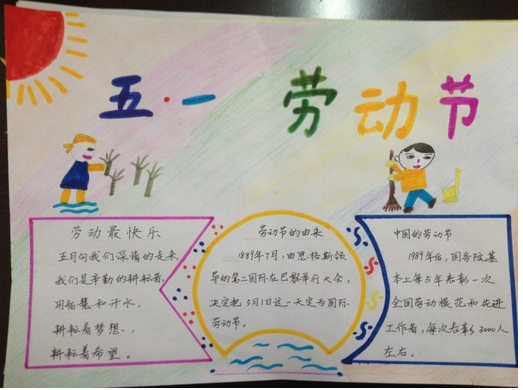 五·一 劳动节
劳动最快乐
五月向我们深情的走来,
我们是辛勤的耕耘者,
用智慧和汗水,
耕耘着梦想、
耕耘着希望。
劳动节的由来
1889年7月,由恩格斯领
导的第二国际在巴黎举行大会,
决定把5月1日这一天定为国际
劳动节。
中国的劳动节
1989年后,国务院基
本上每5年表彰一次
全国劳动模范和先进
工作者,每次表彰3000人
左右。